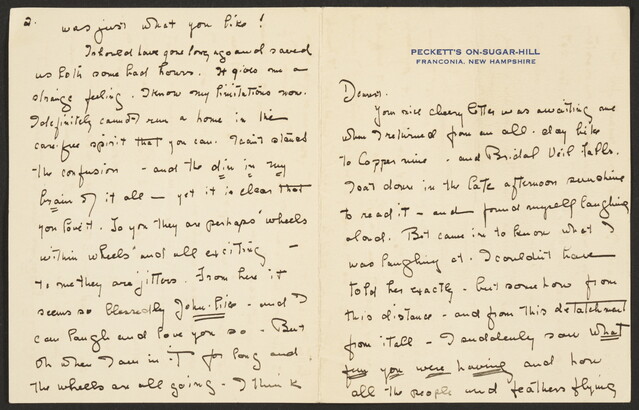 PECKETT'S ON-SUGAR-HILL
FRANCONIA, NEW HAMPSHIRE
Dearest.
Your nice cheery letter was awaiting me
when I returned from an all-day hike
to Coppermine - and Bridal Veil Falls.
I sat down in the late afternoon sunshine
to read it - and found myself laughing
aloud. Bet came in to know what I
was laughing at. I couldn't have
told her exactly - but somehow from
this distance - and from this detatchment
from it all - I suddenly saw what
fun you were having and how
all the people and feathers flying
2.
was just what you like!
I should have gone long ago and saved
us both some bad hours. It gives me a
strange feeling. I know my limitations now.
I definitely cannot run a home in the
care-free spirit that you can. I can't stand
the confusion - and the din in my
brain of it all - yet it is clear that
you love it. To you they are perhaps 'wheels
within wheels' and all exciting -
to me they are jitters. From here it
seems so blessedly John-like - and I
can laugh and love you so - But
oh when I am in it for long and
the wheels are all going - I think